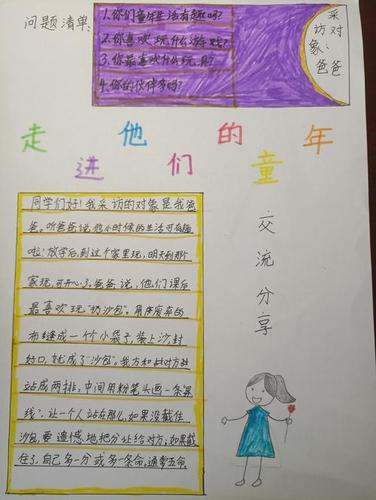 问题清单:
1.你们童年生活有趣吗?
2.你喜欢玩什么游戏?
3.你最喜欢什么玩具?
4.你的伙伴多吗?
采访对象:爸爸
走进他们的童年
同学们好!我采访的对象是我爸
爸。听爸爸说,他小时候的生活可有趣
啦!放学后,到这个家里玩,明天到那个
家玩,可开心了。爸爸说,他们课后
最喜欢玩"扔沙包"。用废弃的
布缝成一个小袋子,装上沙封
好口,就成了"沙包"。我方和敌对方站
站成两排,中间用粉笔头画一条"界
线",让一个人站在那儿,如果没截住
沙包,要遗憾地把分让给对方;如果截
住了,自己多一分或多一条命,通常五命
交流分享